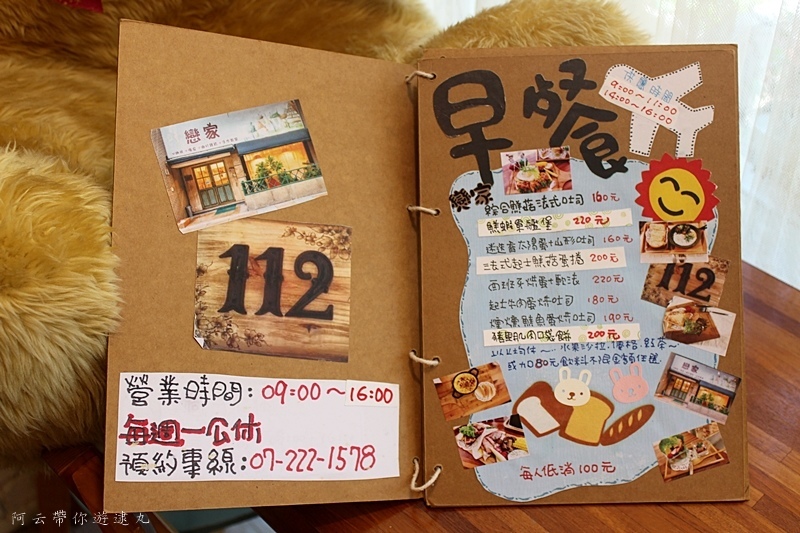 戀家
112
營業時間：09:00～16:00
每週一公休
預約專線：07-222-1578
早餐
供應時間
9:00～11:00
14:00～16:00
戀家
綜合鮮菇法式吐司 160元
鮮蝦軍艦堡 220元
迷迭義大陽蛋山形吐司 160元
法式起士鮮菇蛋捲 200元
西班牙烘蛋+軟法 220元
起士牛肉蛋烤吐司 180元
燻鮭魚蛋烤吐司 190元
豬里肌肉口袋餅 200元
以上均付～水果沙拉、濃湯、紅茶～
或加80元飲料不限金額任選
112
戀家
每人低消100元
阿云帶你遊逮丸